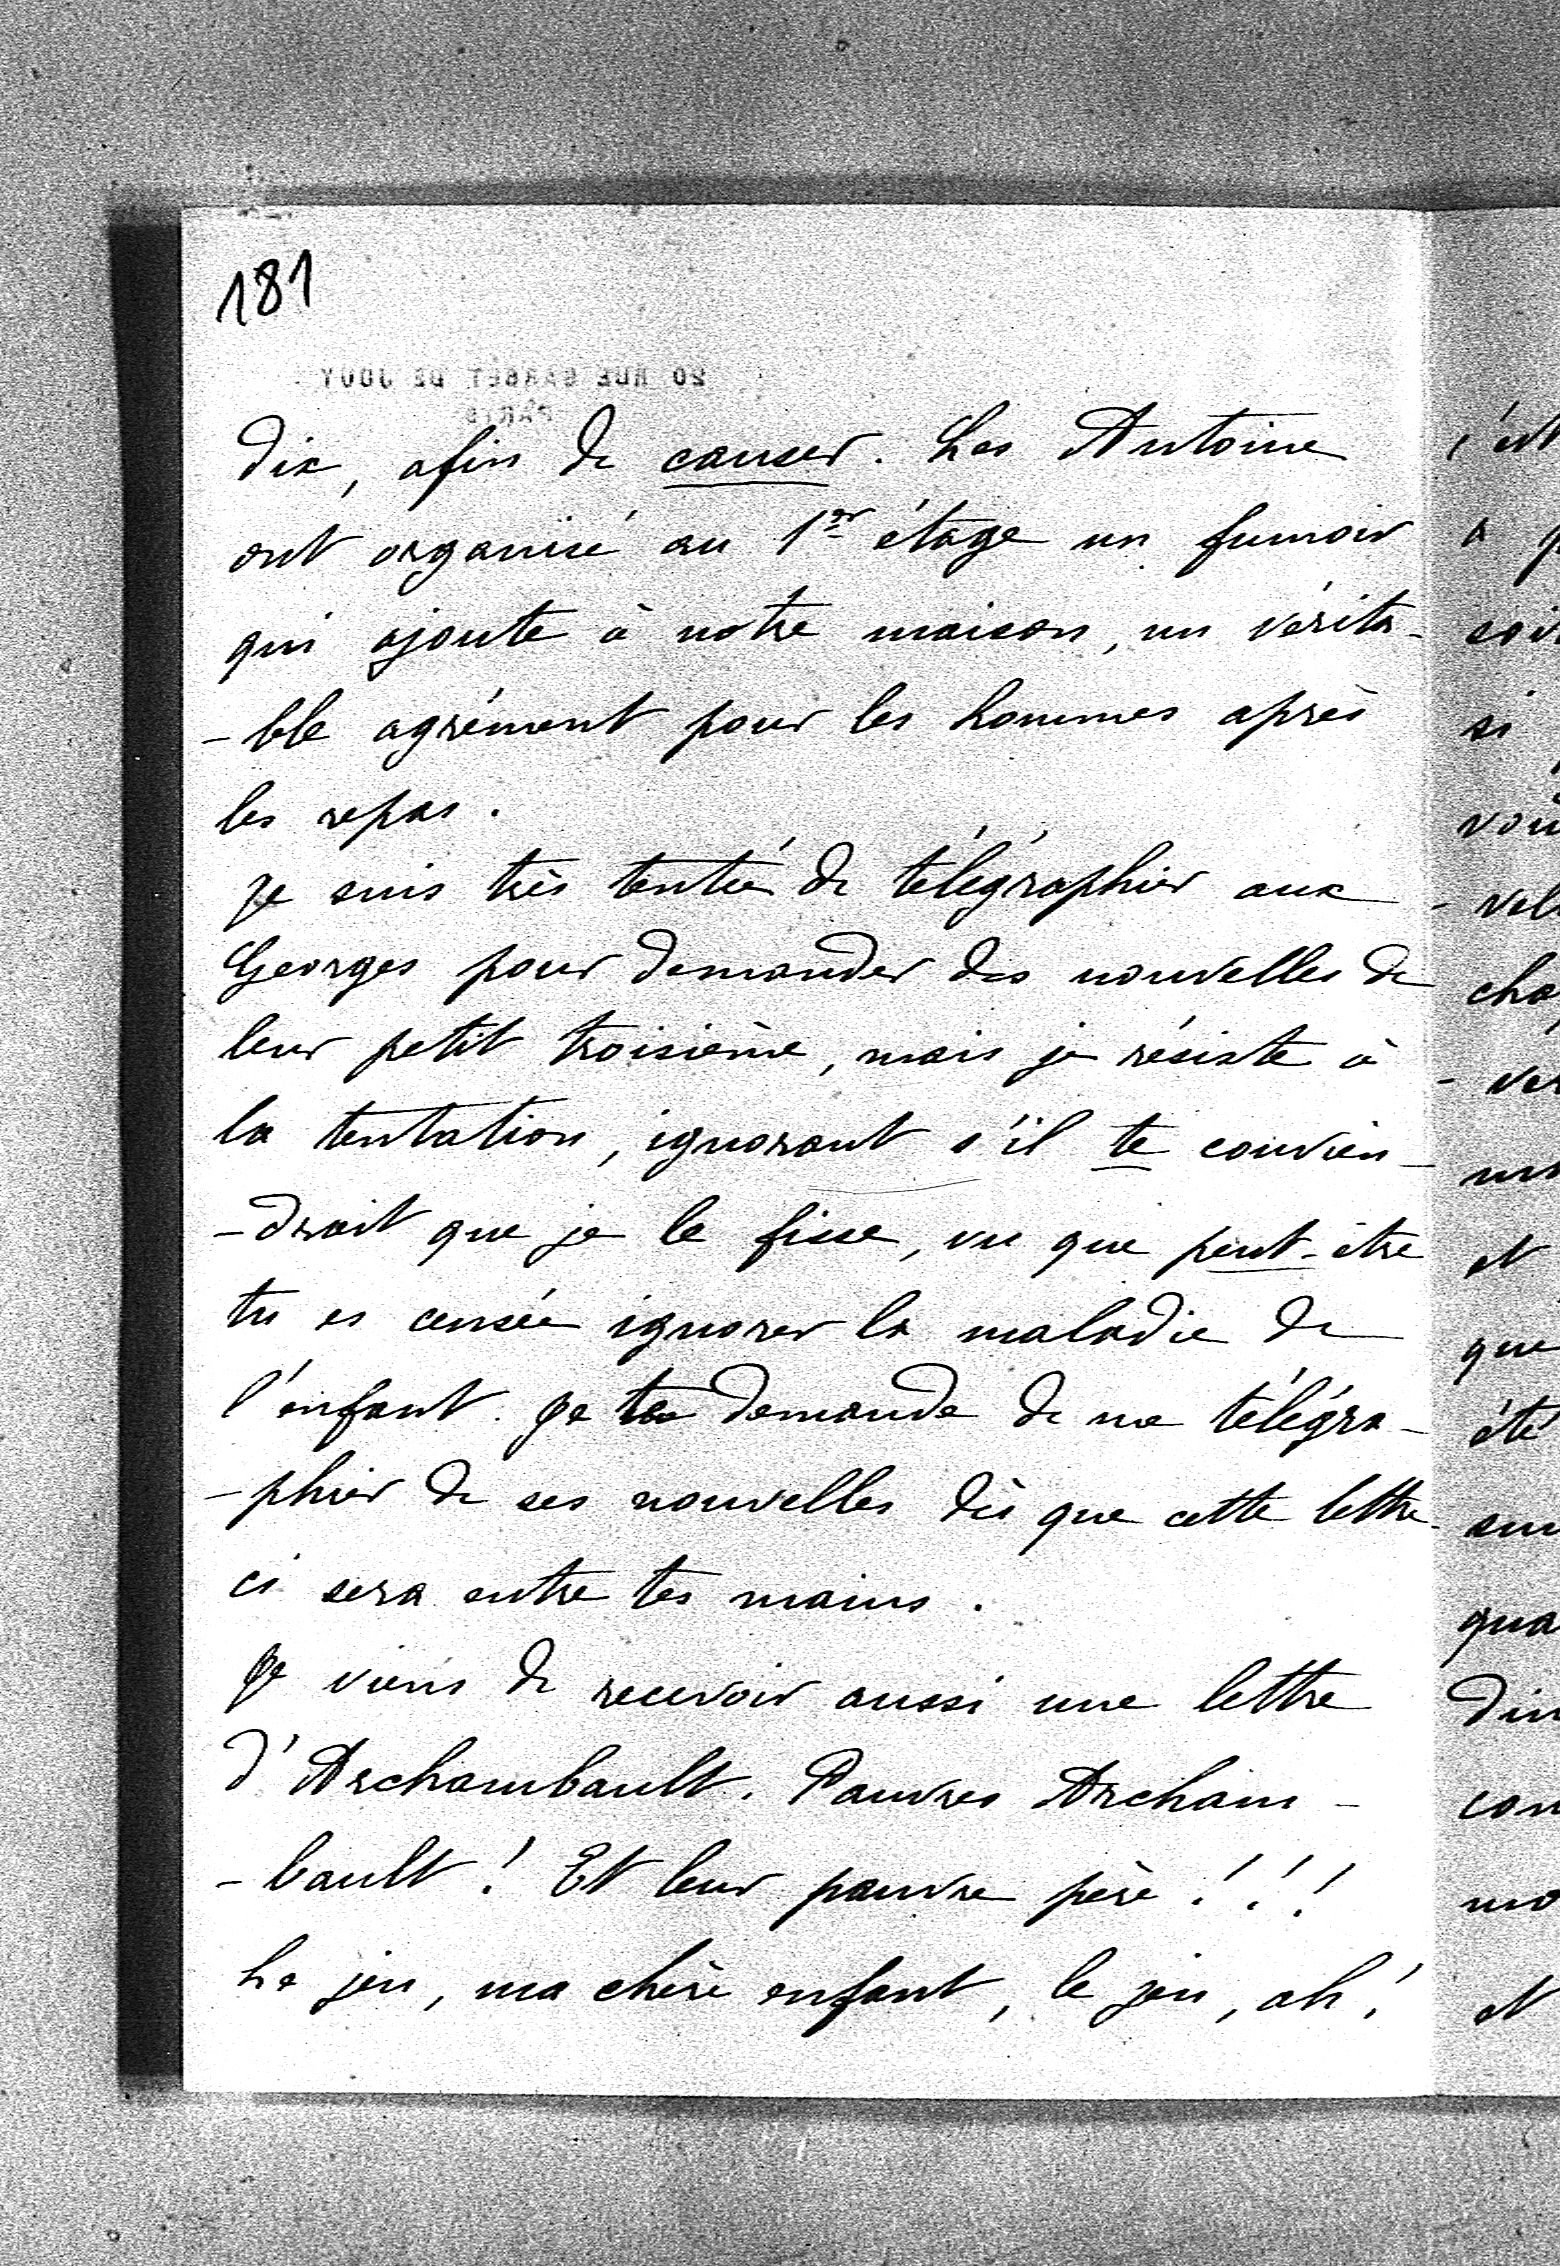 181
20 RUE BARBET DE JOUY
PARIS
dix, afin de causer. Les Antoine
ont organisé au 1er étage un fumoir
qui ajoute à notre maison, un vérita-
-ble agrément pour les hommes après
les repas.
Je suis très tentée de télégraphier aux
Georges pour demander des nouvelles de
leur petit troisième, mais je résiste à
la tentation, ignorant s'il te convien-
-drait que je le fisse, vu que peut-être
tu es censée ignorer la maladie de
l'enfant. Je te demande de me télégra-
-phier de ses nouvelles dès que cette lettre-
ci sera entre tes mains.
Je viens de recevoir aussi une lettre
d'Archambault. Pauvres Archam-
-bault! Et leur pauvre père!!!
Le jeu, ma chère enfant, le jeu, ah!